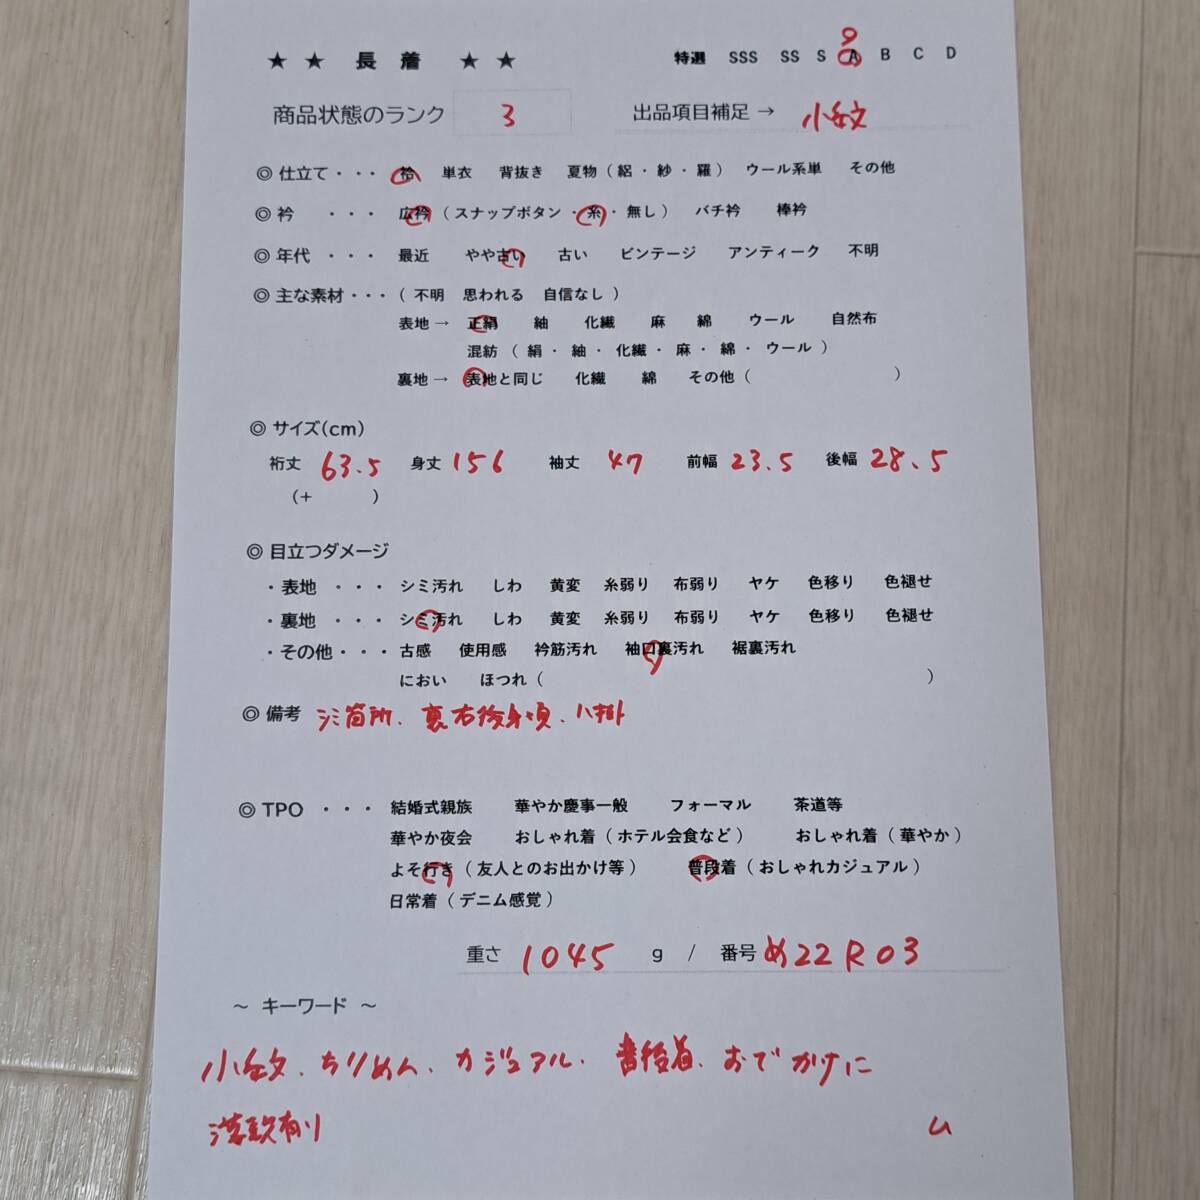 ★ ★ 長 着 ★ ★ 特選 SSS SS S A B C D
商品状態のランク 3 出品項目補足 → 小紋
◎ 仕立て・・・ 袷 単衣 背抜き 夏物（絽・紗・羅） ウール系単 その他
◎ 衿 ・・・ 広衿（スナップボタン・糸・無し） バチ衿 棒衿
◎ 年代 ・・・ 最近 やや古い 古い ビンテージ アンティーク 不明
◎ 主な素材・・・（不明 思われる 自信なし）
表地→ 正絹 紬 化繊 麻 綿 ウール 自然布
混紡（絹・紬・化繊・麻・綿・ウール）
裏地→ 表地と同じ 化繊 綿 その他（ ）
◎ サイズ(cm)
裄丈 63.5 身丈 156 袖丈 47 前幅 23.5 後幅 28.5
(+ )
◎ 目立つダメージ
・表地 ・・・ シミ汚れ しわ 黄変 糸弱り 布弱り ヤケ 色移り 色褪せ
・裏地 ・・・ シミ汚れ しわ 黄変 糸弱り 布弱り ヤケ 色移り 色褪せ
・その他・・・ 古感 使用感 衿筋汚れ 袖口裏汚れ 裾裏汚れ
におい ほつれ（ ）
◎ 備考 シミ箇所、裏右後身頃、八掛
◎ TPO ・・・ 結婚式親族 華やか慶事一般 フォーマル 茶道等
華やか夜会 おしゃれ着（ホテル会食など） おしゃれ着（華やか）
よそ行き（友人とのお出かけ等） 普段着（おしゃれカジュアル）
日常着（デニム感覚）
重さ 1045 g / 番号 め22R03
～ キーワード ～
小紋、ちりめん、カジュアル、普段着、おでかけに
落款有り ム